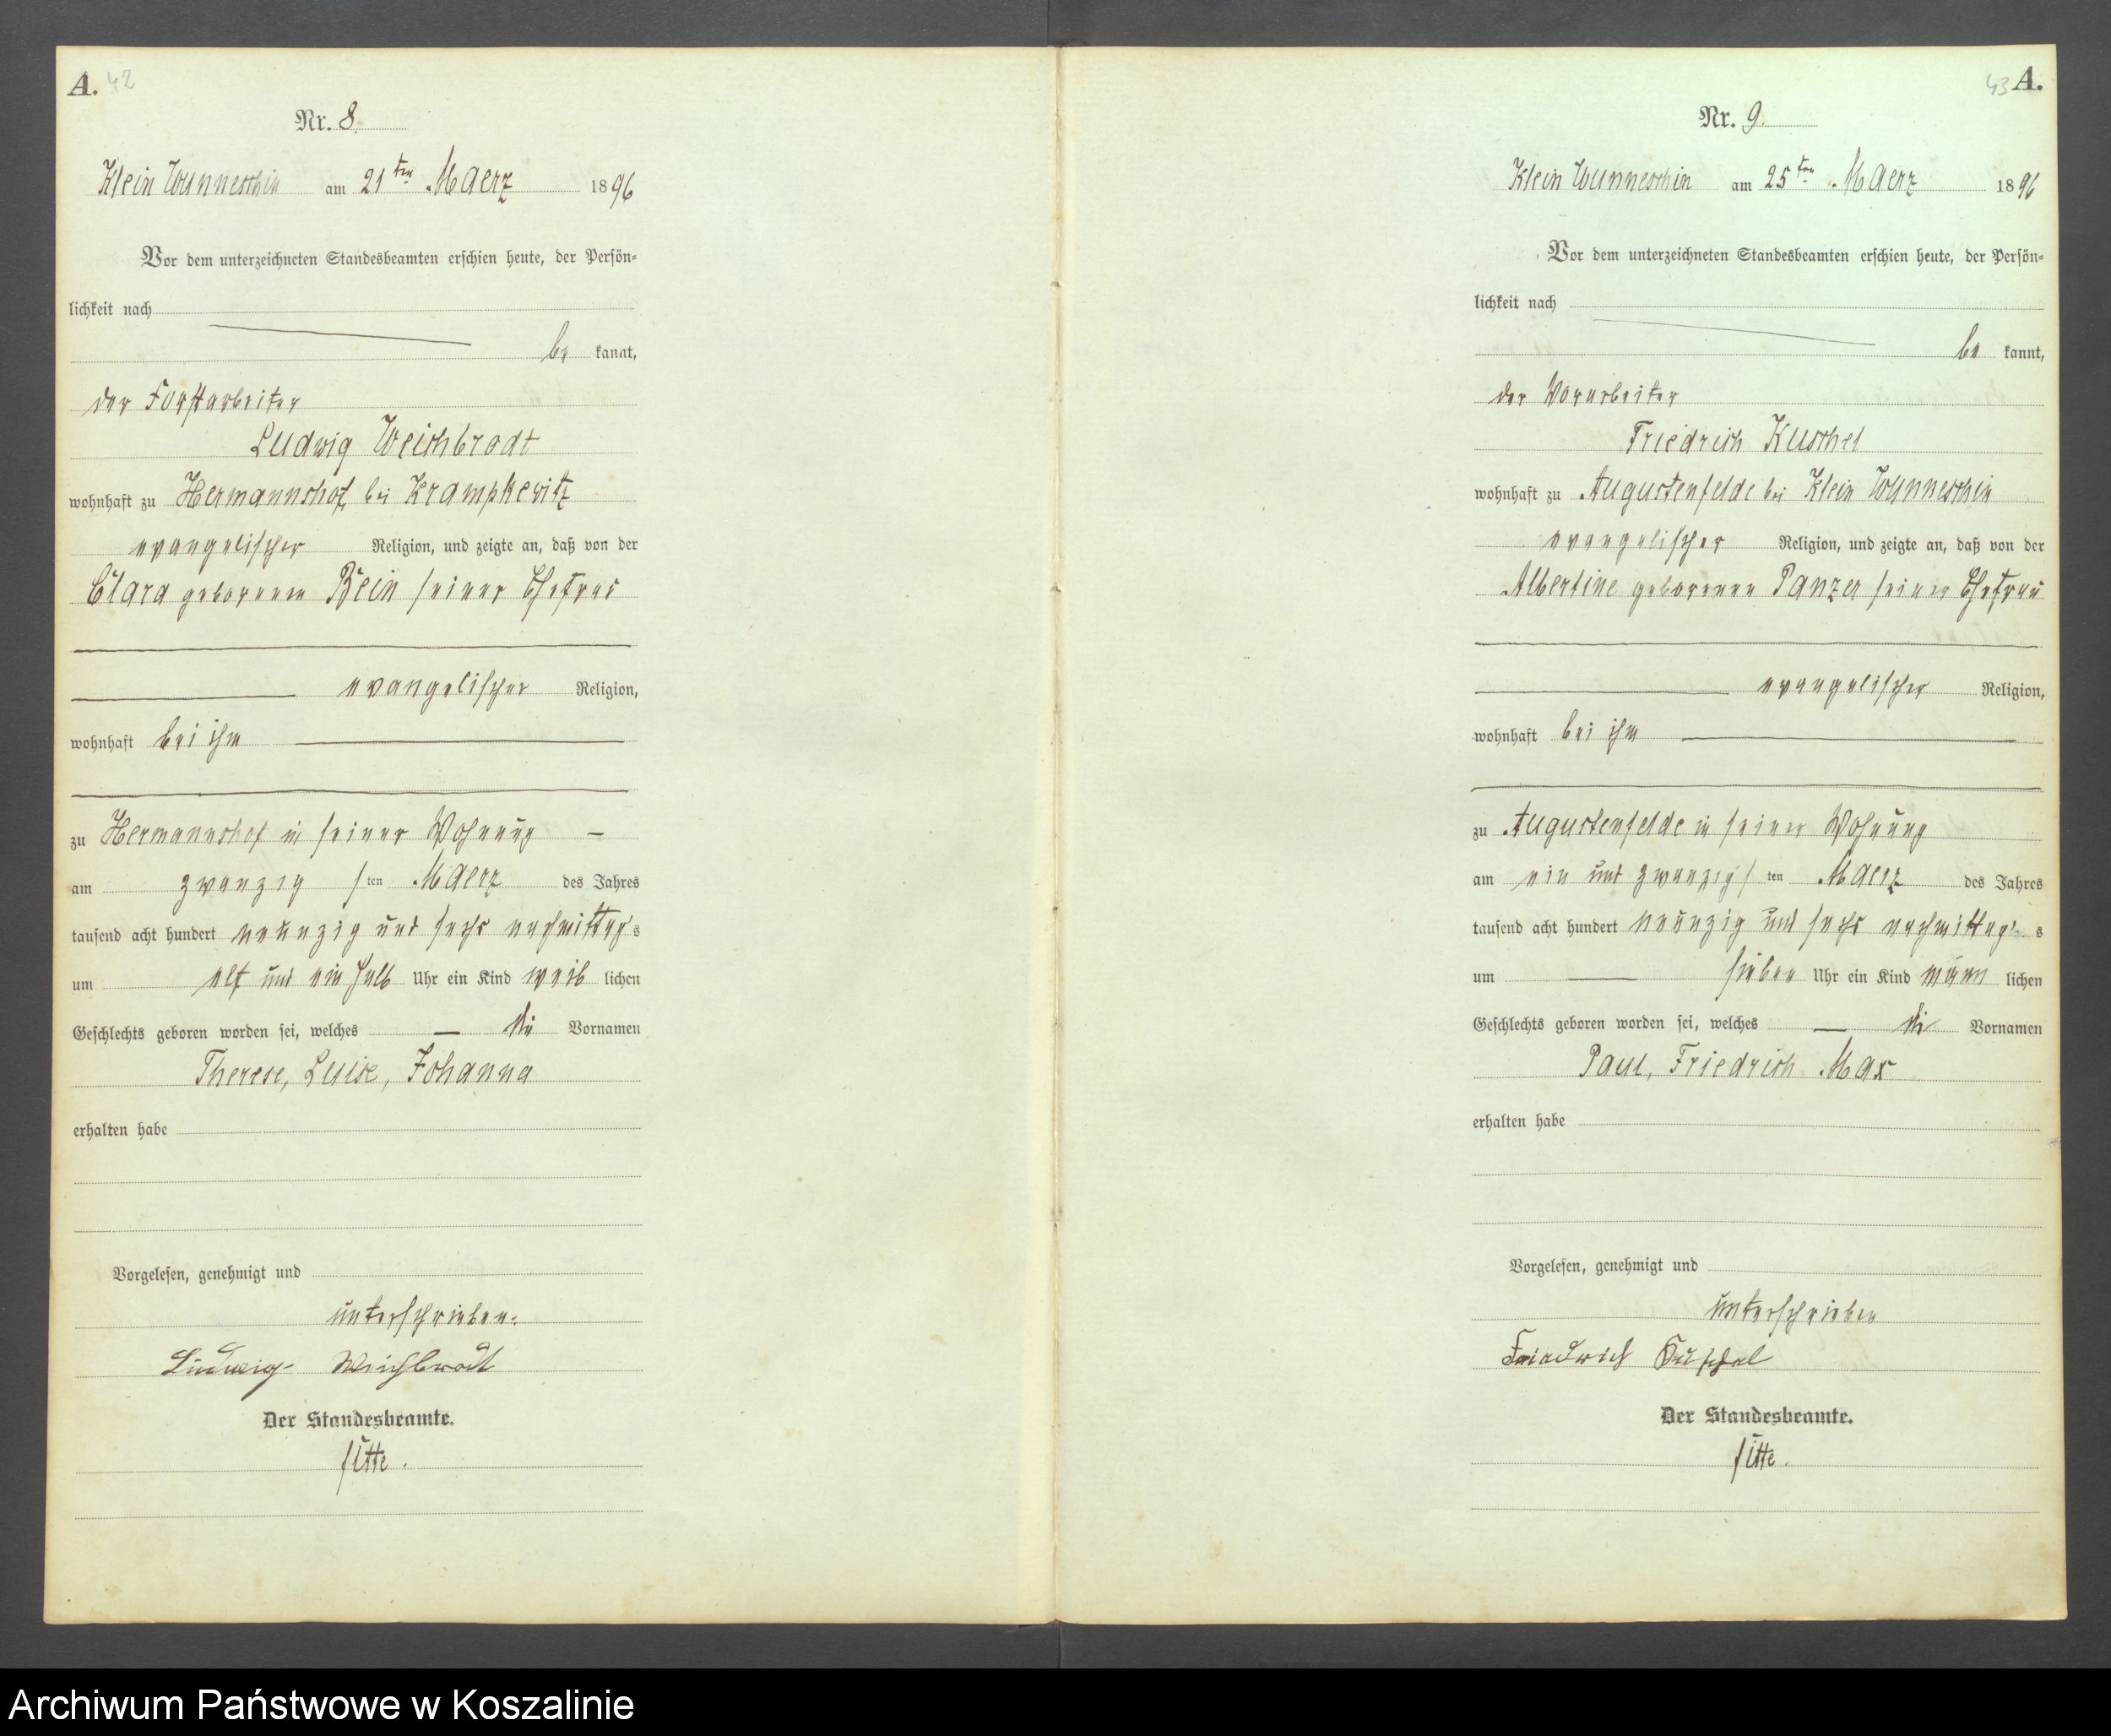 A. 42
Nr. 8.
Klein Wunneschin am 21ten Maerz 1896
Vor dem unterzeichneten Standesbeamten erschien heute, der Persön-
lichkeit nach
be kannt,
der Forstarbeiter
Ludwig Weichbrodt
wohnhaft zu Hermannshof bei Krampkewitz
evangelischer Religion, und zeigte an, daß von der
Clara geborenen Bein seiner Ehefrau
evangelischer Religion,
wohnhaft bei ihm
zu Hermannshof in seiner Wohnung
am zwanzig sten Maerz des Jahres
tausend acht hundert neunzig und sechs nachmittags
um elf und ein halb Uhr ein Kind weib lichen
Geschlechts geboren worden sei, welches die Vornamen
Therese, Luise, Johanna
erhalten habe
Vorgelesen, genehmigt und
unterschrieben.
Ludwig Weichbrodt
Der Standesbeamte.
43 A.
Nr. 9.
Klein Wunneschin am 25ten Maerz 1896
Vor dem unterzeichneten Standesbeamten erschien heute, der Persön-
lichkeit nach
be kannt,
der Vorarbeiter
Friedrich Kuschel
wohnhaft zu Augustenfelde bei Klein Wunneschin
evangelischer Religion, und zeigte an, daß von der
Albertine geborenen Panzer seiner Ehefrau
evangelischer Religion,
wohnhaft bei ihm
zu Augustenfelde in seiner Wohnung
am ein und zwanzig sten Maerz des Jahres
tausend acht hundert neunzig und sechs nachmittags
um sieben Uhr ein Kind männ lichen
Geschlechts geboren worden sei, welches die Vornamen
Paul, Friedrich Max
erhalten habe
Vorgelesen, genehmigt und
unterschrieben
Friedrich Kuschel
Der Standesbeamte.
Archiwum Państwowe w Koszalinie